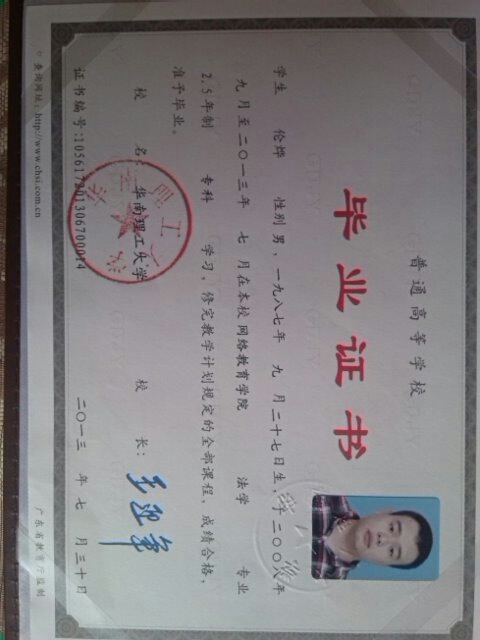 普通高等学校
毕业证书
学生 伦烨 性别 男，一九八七年 九 月二十七日生，于二〇〇八年
九月至二〇一三年 七 月在本校 网络教育学院 法学 专业
2.5年制 专科 学习，修完教学计划规定的全部课程，成绩合格，
准予毕业。
校 名：华南理工大学 校 长：王迎军
证书编号:105617201306700014 二〇一三 年 七 月 三十日
查询网址：http://www.chsi.com.cn 广东省教育厅监制